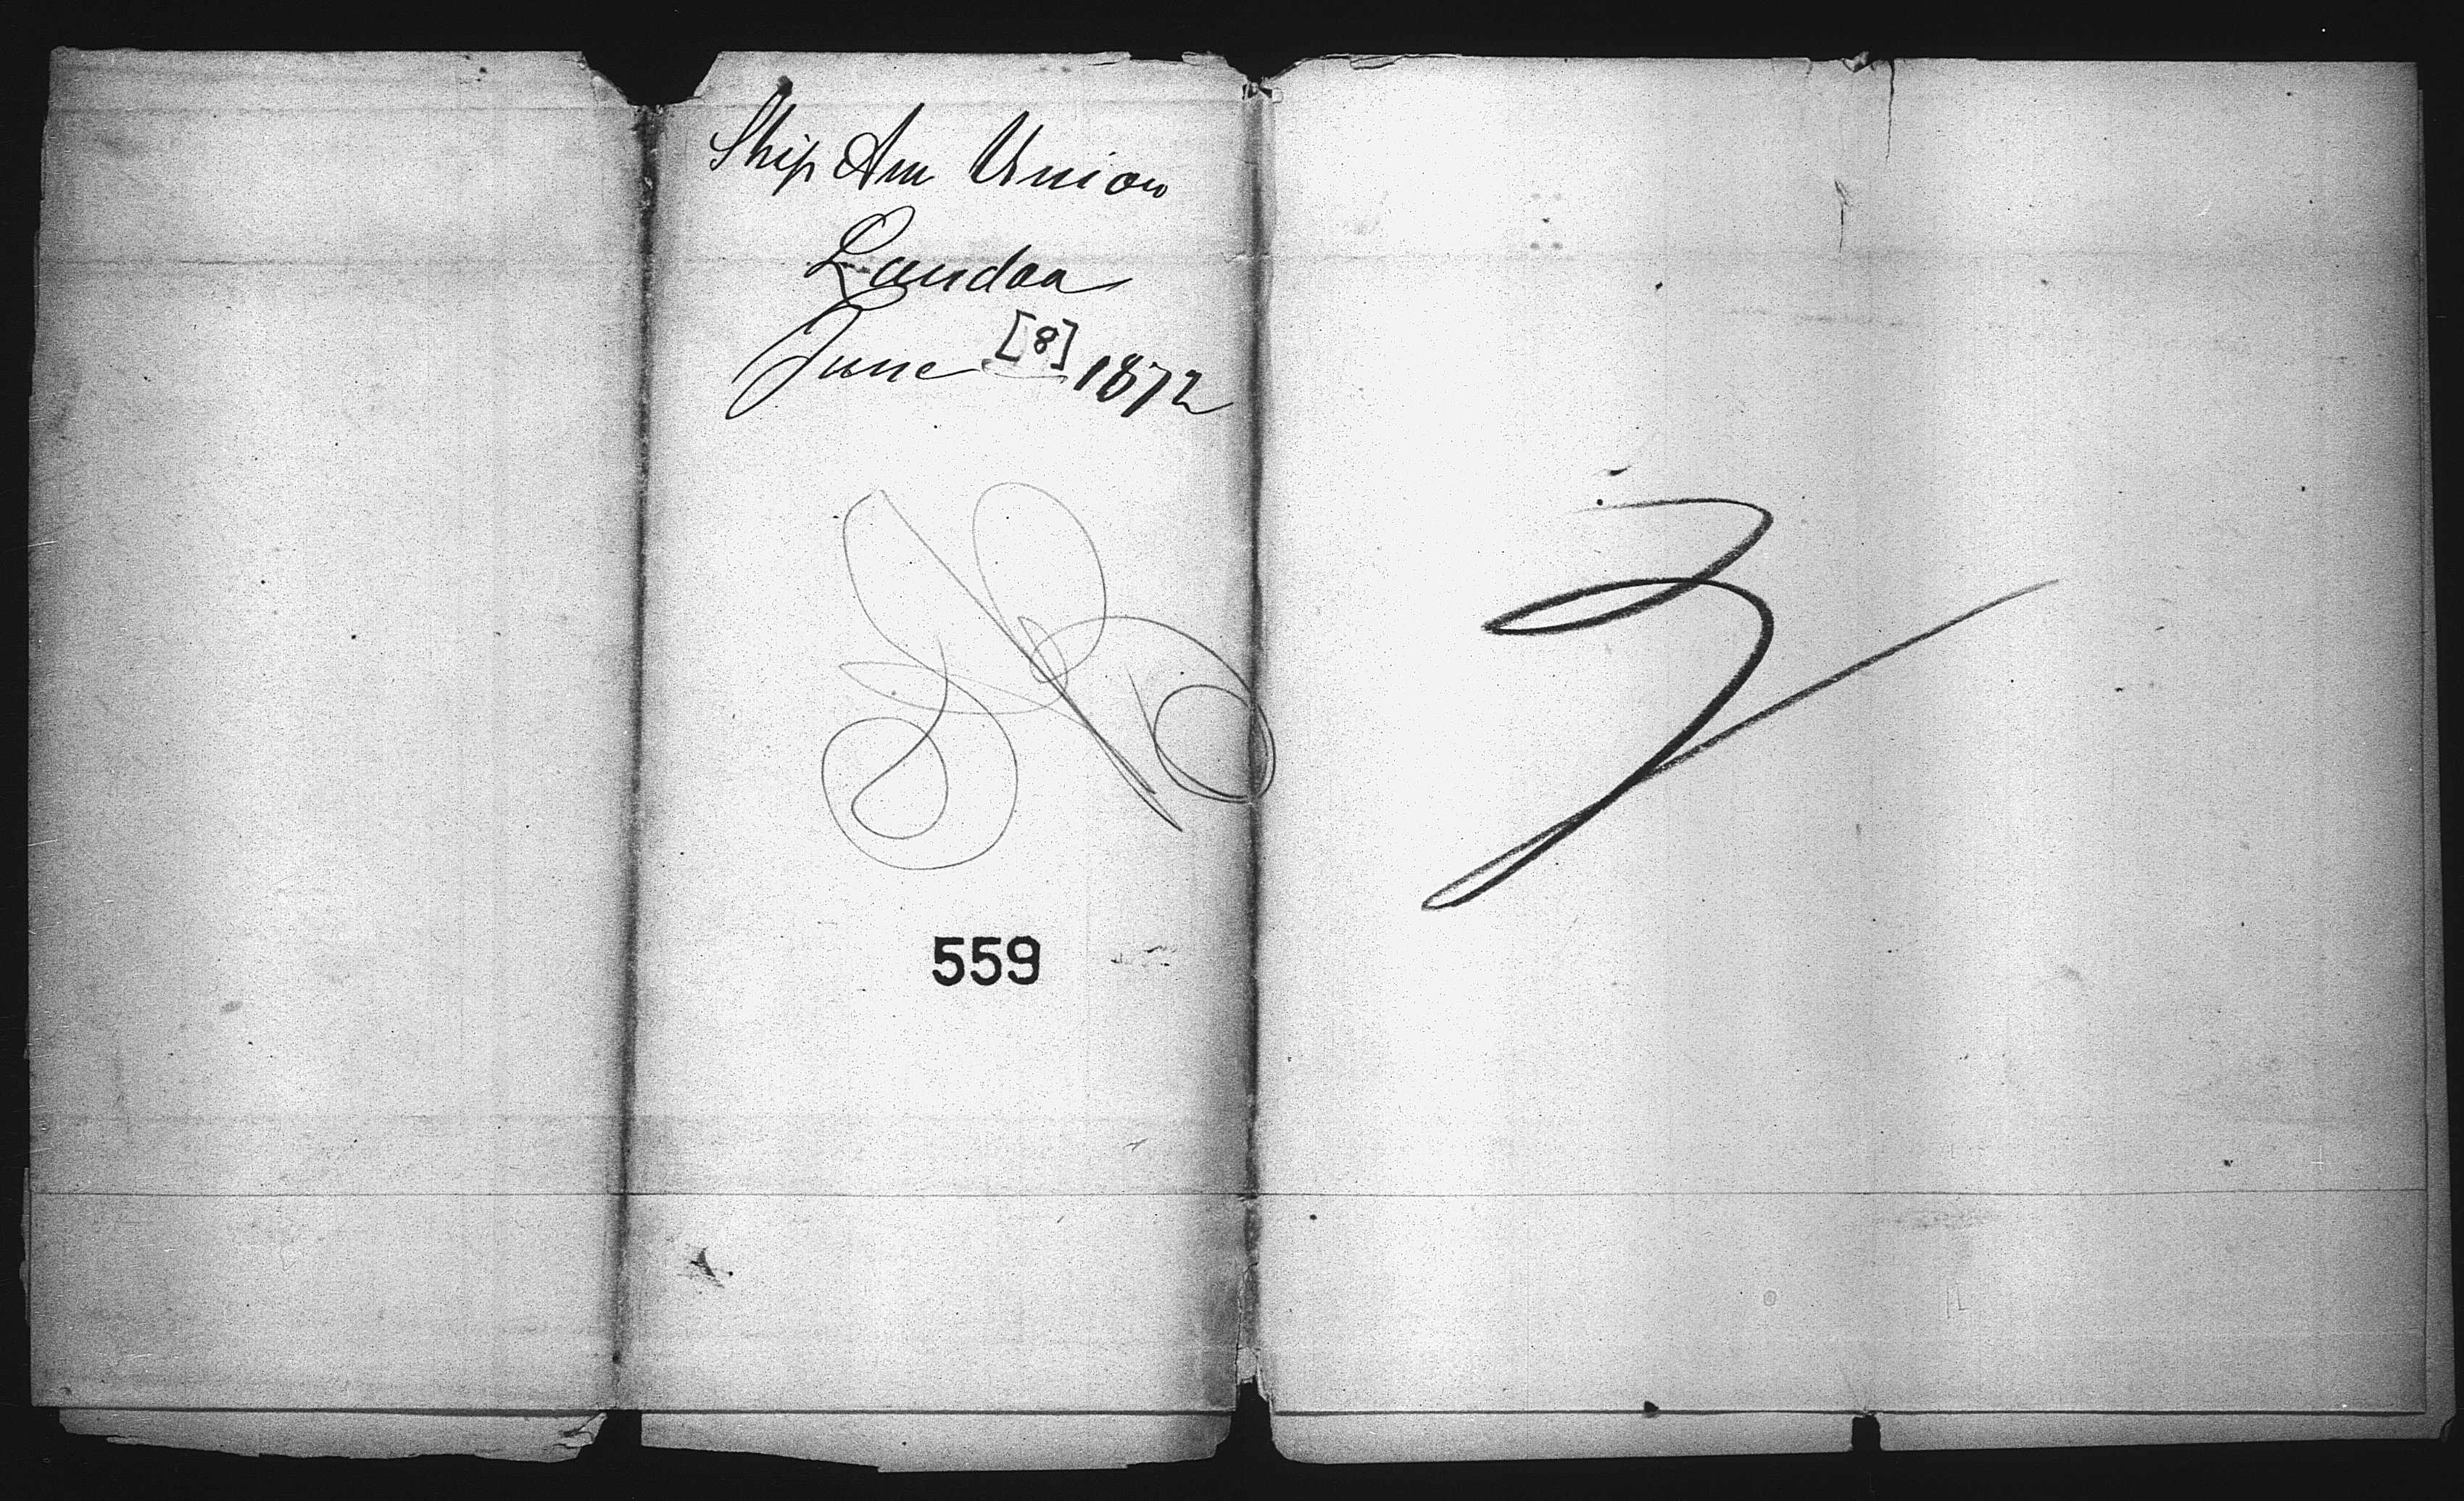 Ship Am Union
London
June [8] 1872
559
3